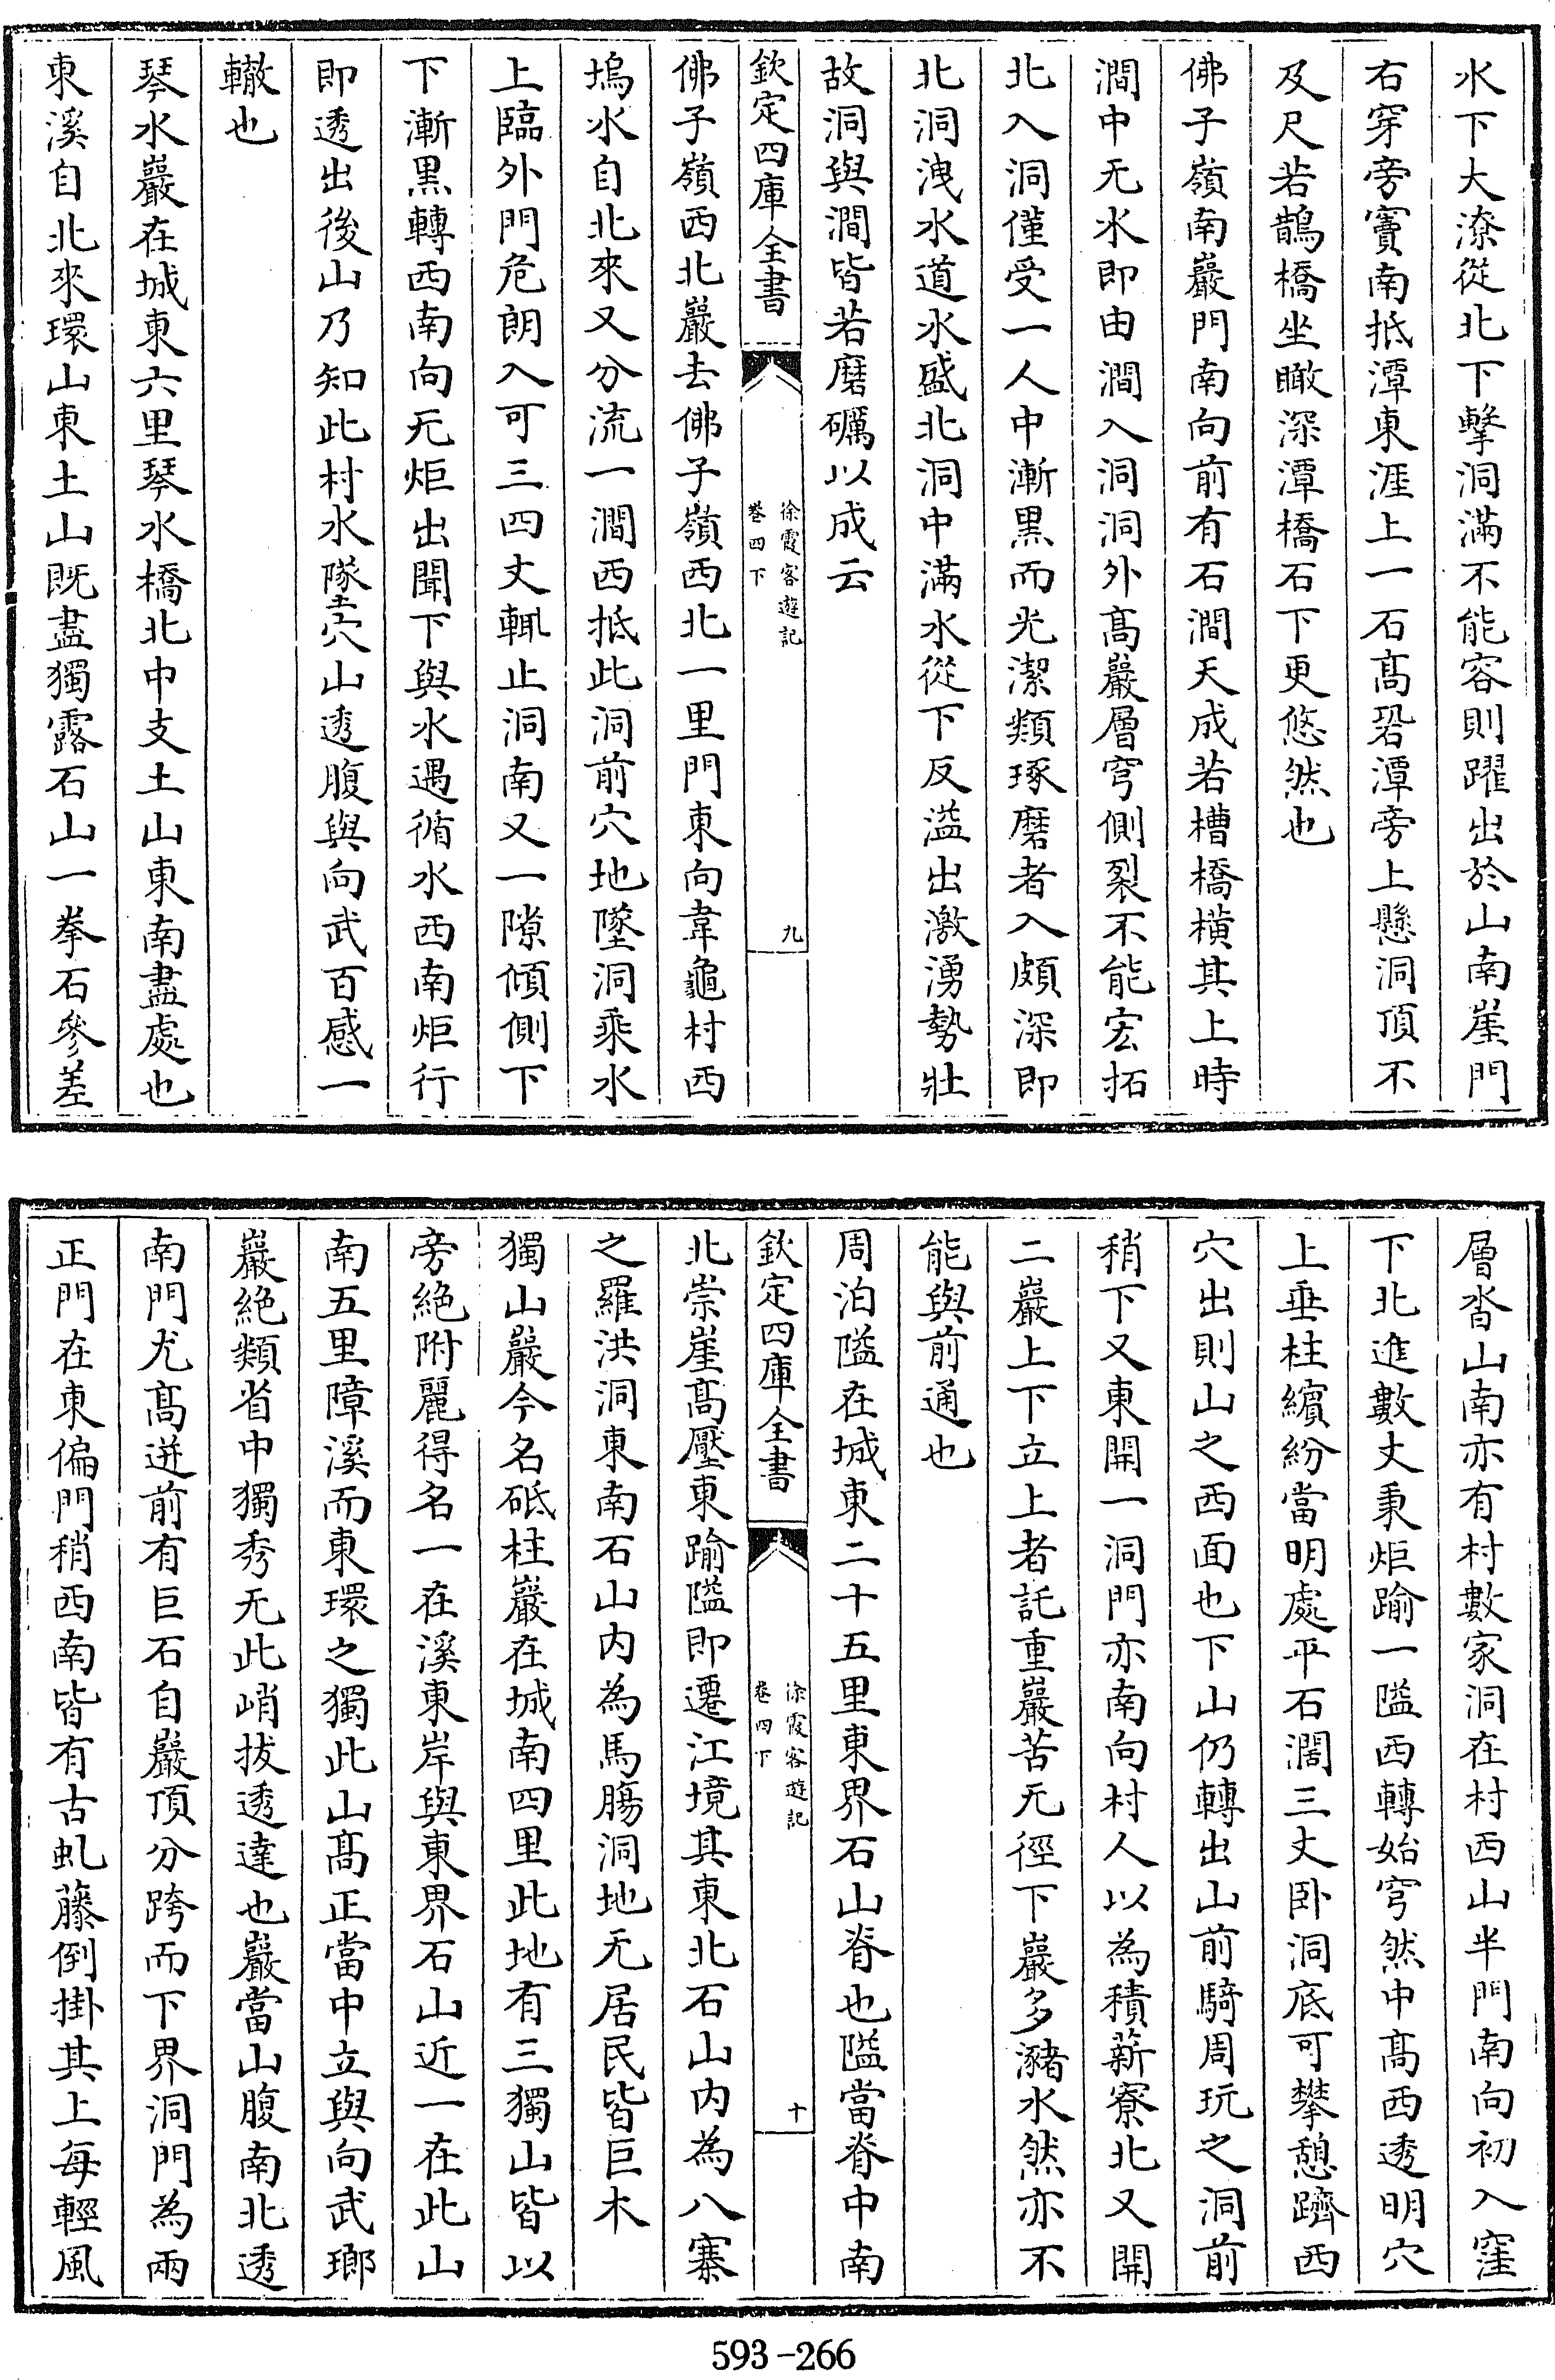 水下大潦從北下擊洞滿不能容則躍出於山南崖門
右穿旁竇南抵潭東涯上一石高跨潭旁上懸洞頂不
及尺若鵲橋坐瞰深潭橋石下更悠然也
佛子嶺南巖門南向前有石澗天成若槽橋橫其上時
澗中无水即由澗入洞洞外高巖層穹側裂不能宏拓
北入洞僅受一人中漸黑而光潔類琢磨者入頗深即
北洞洩水道水盛北洞中滿水從下反溢出激湧勢壯
故洞與澗皆若磨礪以成云
欽定四庫全書
徐霞客遊記
卷四下
九
佛子嶺西北巖去佛子嶺西北一里門東向韋龜村西
塢水自北來又分流一澗西抵此洞前穴地墜洞乘水
上臨外門危朗入可三四丈輒止洞南又一隙傾側下
下漸黑轉西南向无炬出聞下與水遇循水西南炬行
即透出後山乃知此村水隊壑穴山透腹與向武百感一
轍也
琴水巖在城東六里琴水橋北中支土山東南盡處也
東溪自北來環山東土山既盡獨露石山一拳石參差
層沓山南亦有村數家洞在村西山半門南向初入窪
下北進數丈秉炬踰一隘西轉始穹然中高西透明穴
上垂柱繽紛當明處平石濶三丈卧洞底可攀憩躋西
穴出則山之西面也下山仍轉出山前騎周玩之洞前
稍下又東開一洞門亦南向村人以為積薪寮北又開
二巖上下立上者託重巖苦无徑下巖多瀦水然亦不
能與前通也
周泊隘在城東二十五里東界石山脊也隘當脊中南
欽定四庫全書
徐霞客遊記
卷四下
十
北崇崖高壓東踰隘即遷江境其東北石山內為八寨
之羅洪洞東南石山内為馬腸洞地无居民皆巨木
獨山巖今名砥柱巖在城南四里此地有三獨山皆以
旁絶附麗得名一在溪東岸與東界石山近一在此山
南五里障溪而東環之獨此山高正當中立與向武瑯
巖絶類省中獨秀无此峭拔透達也巖當山腹南北透
南門尤高迸前有巨石自巖頂分跨而下界洞門為兩
正門在東偏門稍西南皆有古虬藤倒掛其上每輕風
593-266